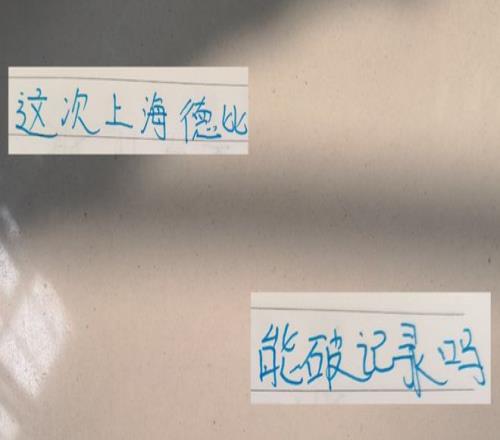 这次上海德比
能破记录吗